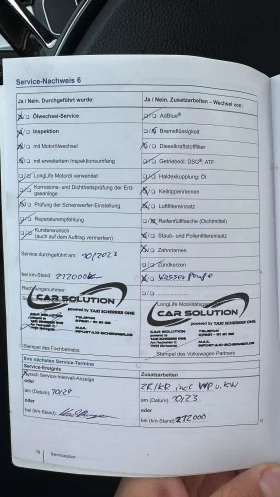 Service-Nachweis 6
Ja / Nein. Durchgeführt wurde:
Ölwechsel-Service
Inspektion
mit Motorölwechsel
mit erweitertem Inspektionsumfang
LongLife Motoröl verwendet
Korrosions- und Dichtheitsprüfung der Erd-
gasanlage
Prüfung der Scheinwerfer-Einstellung
Reparaturempfehlung
Kundenwunsch
(auch auf dem Auftrag vermerken)
Service durchgeführt am: 10/2023
bei km-Stand: 272000
Rechnungsnummer:
CAR SOLUTION
powered by TAXI SCHERER OHG
Stempel des Fachbetriebs
Ja / Nein. Zusatzarbeiten – Wechsel von:
AdBlue®
Bremsflüssigkeit
Dieselkraftstofffilter
Getriebeöl: DSG®, ATF
Haldexkupplung: Öl
Keilrippenriemen
Luftfiltereinsatz
Reifenfüllflasche (Dichtmittel)
Staub- und Pollenfiltereinsatz
Zahnriemen
Zündkerzen
Wasserpumpe
CAR SOLUTION
powered by TAXI SCHERER OHG
Stempel des Volkswagen Partners
Ihre nächsten Service-Termine
Service-Ereignis
nach Service-Intervall-Anzeige
oder
am (Datum)
oder
bei (km-Stand)
Zusatzarbeiten
ZR/KR incl WP u. KW
am (Datum) 10/23
oder
bei (km-Stand) 272000
16 Serviceplan